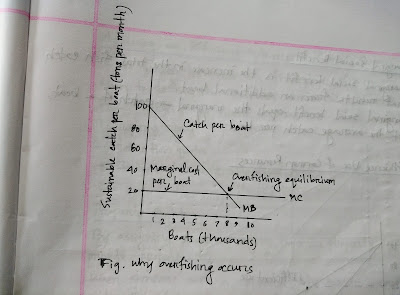 Sustainable catch per boat (tons per month)
100
80
60
40
20
Catch per boat
Marginal cost
per boat
overfishing equilibrium
MC
MB
1 2 3 4 5 6 7 8 9 10
Boats (thousands)
Fig. why overfishing occurs